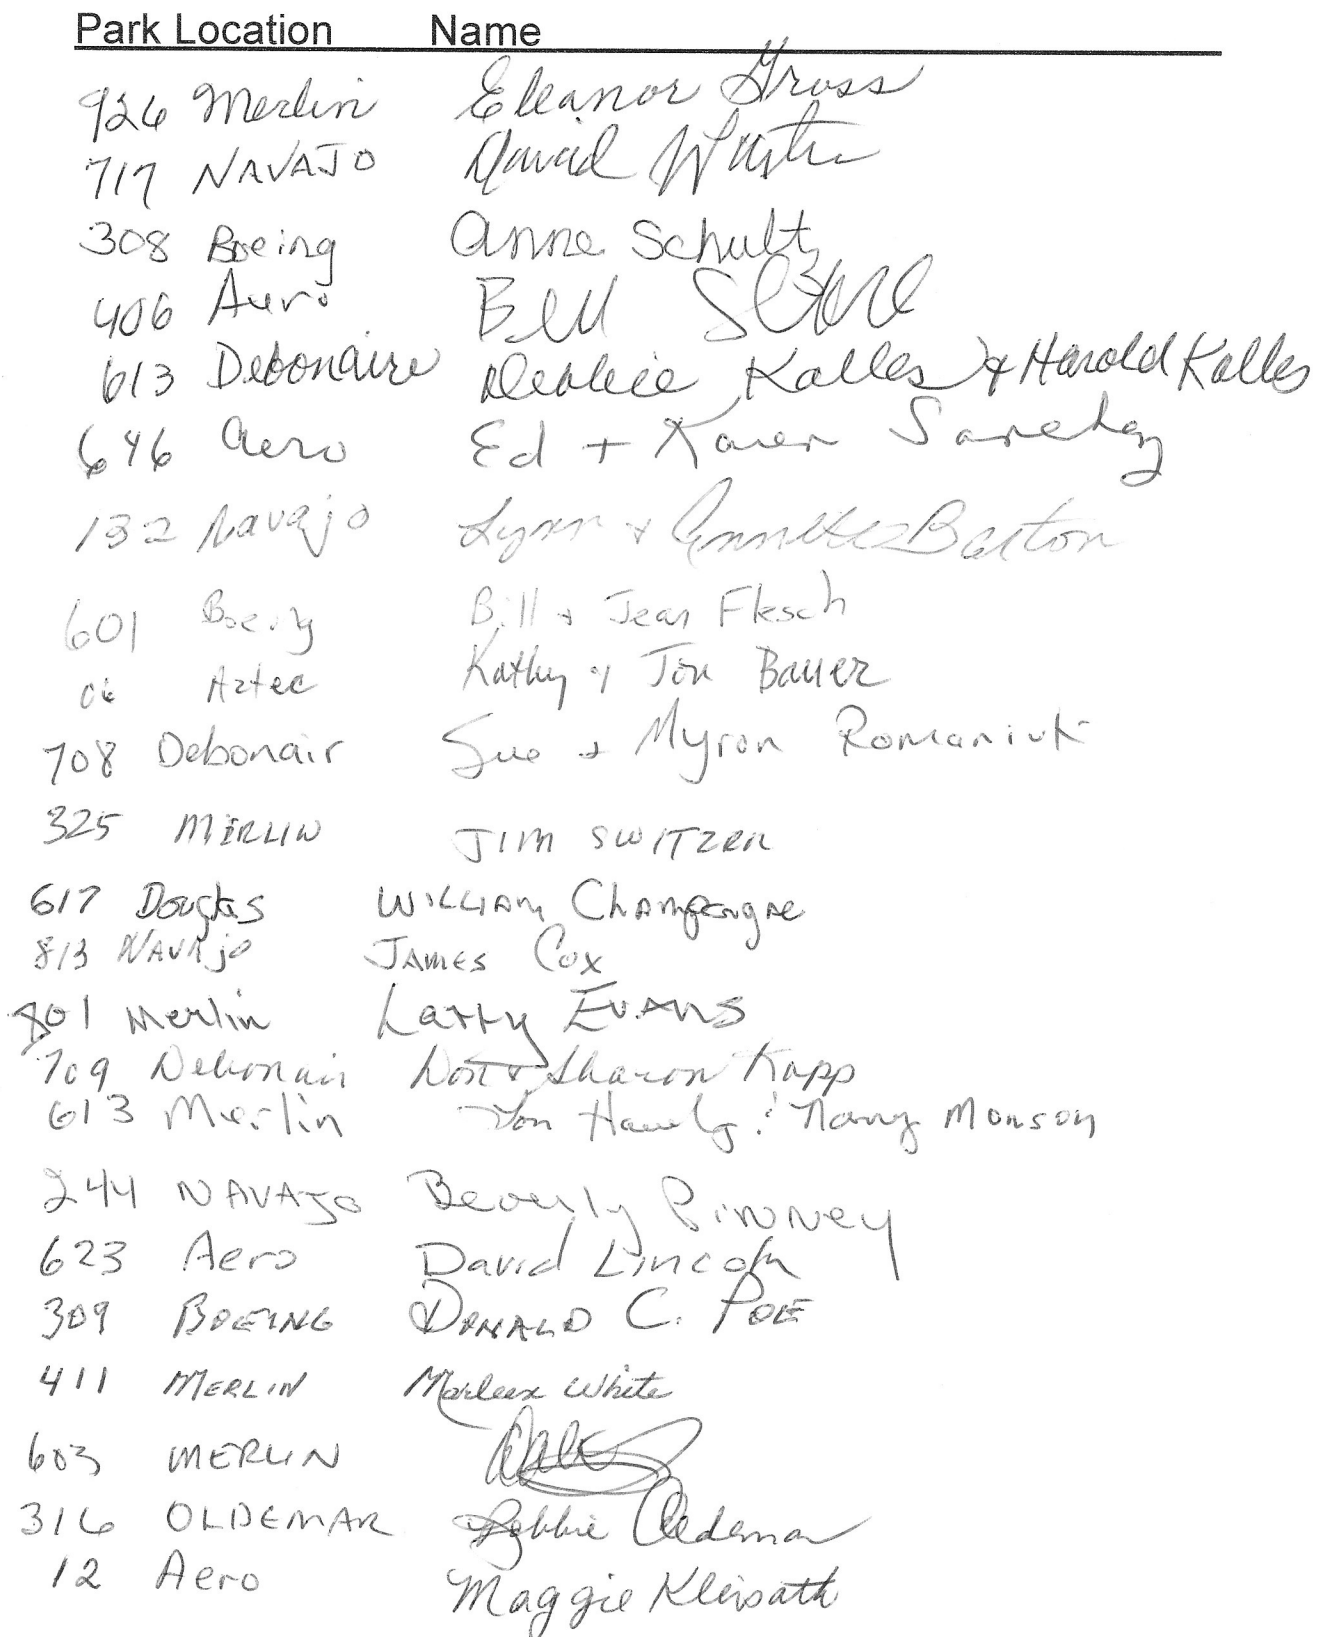 Park Location Name
926 Merlin Eleanor Gross
717 NAVAJO David
308 Boeing Anne Schult
406 Aero Bill
613 Debonaire Debbie Kalles & Harold Kalles
646 Aero Ed + Karen Sanchez
132 Navajo Lynn & Annette Barton
601 Boeing Bill & Jean Flesch
06 Aztec Kathy & Jon Bauer
708 Debonair Sue + Myron Romaniuk
325 MERLIN JIM SWITZER
617 Douglas WILLIAM Champagne
813 NAVAjo JAMES COX
801 Merlin Larry EVANS
709 Debonair Don & Sharon Kapp
613 Merlin Nancy Monson
244 NAVAJO Beverly Pinney
623 Aero David Lincoln
309 BOEING DONALD C. POE
411 MERLIN White
603 MERLIN
316 OLDEMAR Debbie
12 Aero Maggie